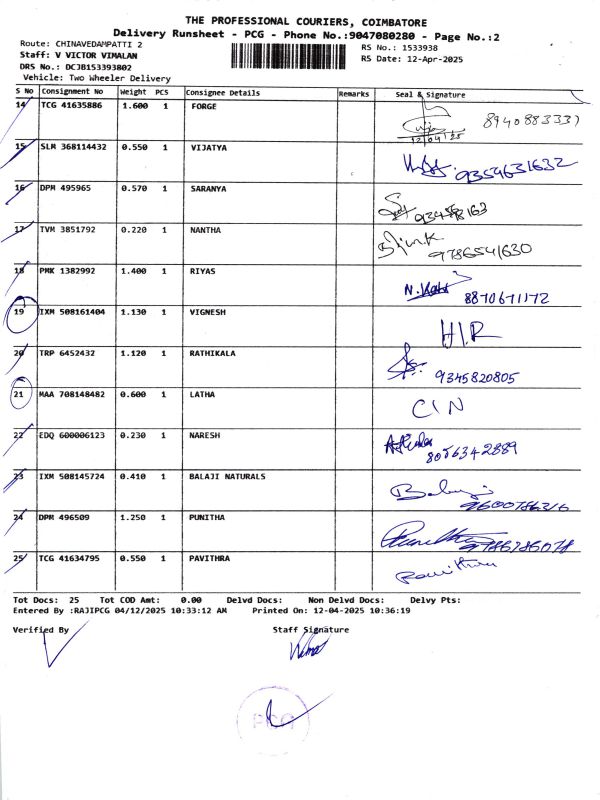 THE PROFESSIONAL COURIERS, COIMBATORE
Delivery Runsheet - PCG - Phone No.:9047080280 - Page No.:2
Route: CHINAVEDAMPATTI 2
RS No.: 1533938
Staff: V VICTOR VIMALAN
RS Date: 12-Apr-2025
DRS No.: DCJB153393802
Vehicle: Two Wheeler Delivery
S No Consignment No Weight PCS Consignee Details Remarks Seal & Signature
14 TCG 41635886 1.600 1 FORGE 12/04/25
15 SLM 368114432 0.550 1 VIJATYA 9354631632
16 DPM 495965 0.570 1 SARANYA
17 TVM 3851792 0.220 1 NANTHA 9786541630
18 PMK 1382992 1.400 1 RIYAS 8870671172
19 IXM 508161404 1.130 1 VIGNESH H/R
20 TRP 6452432 1.120 1 RATHIKALA 9345820805
21 MAA 708148482 0.600 1 LATHA CIN
22 EDQ 600006123 0.230 1 NARESH 8056342889
23 IXM 508145724 0.410 1 BALAJI NATURALS
24 DPM 496509 1.250 1 PUNITHA
25 TCG 41634795 0.550 1 PAVITHRA
Tot Docs: 25 Tot COD Amt: 0.00 Delvd Docs: Non Delvd Docs: Delvy Pts:
Entered By :RAJIPCG 04/12/2025 10:33:12 AM Printed On: 12-04-2025 10:36:19
Verified By Staff Signature
PCG